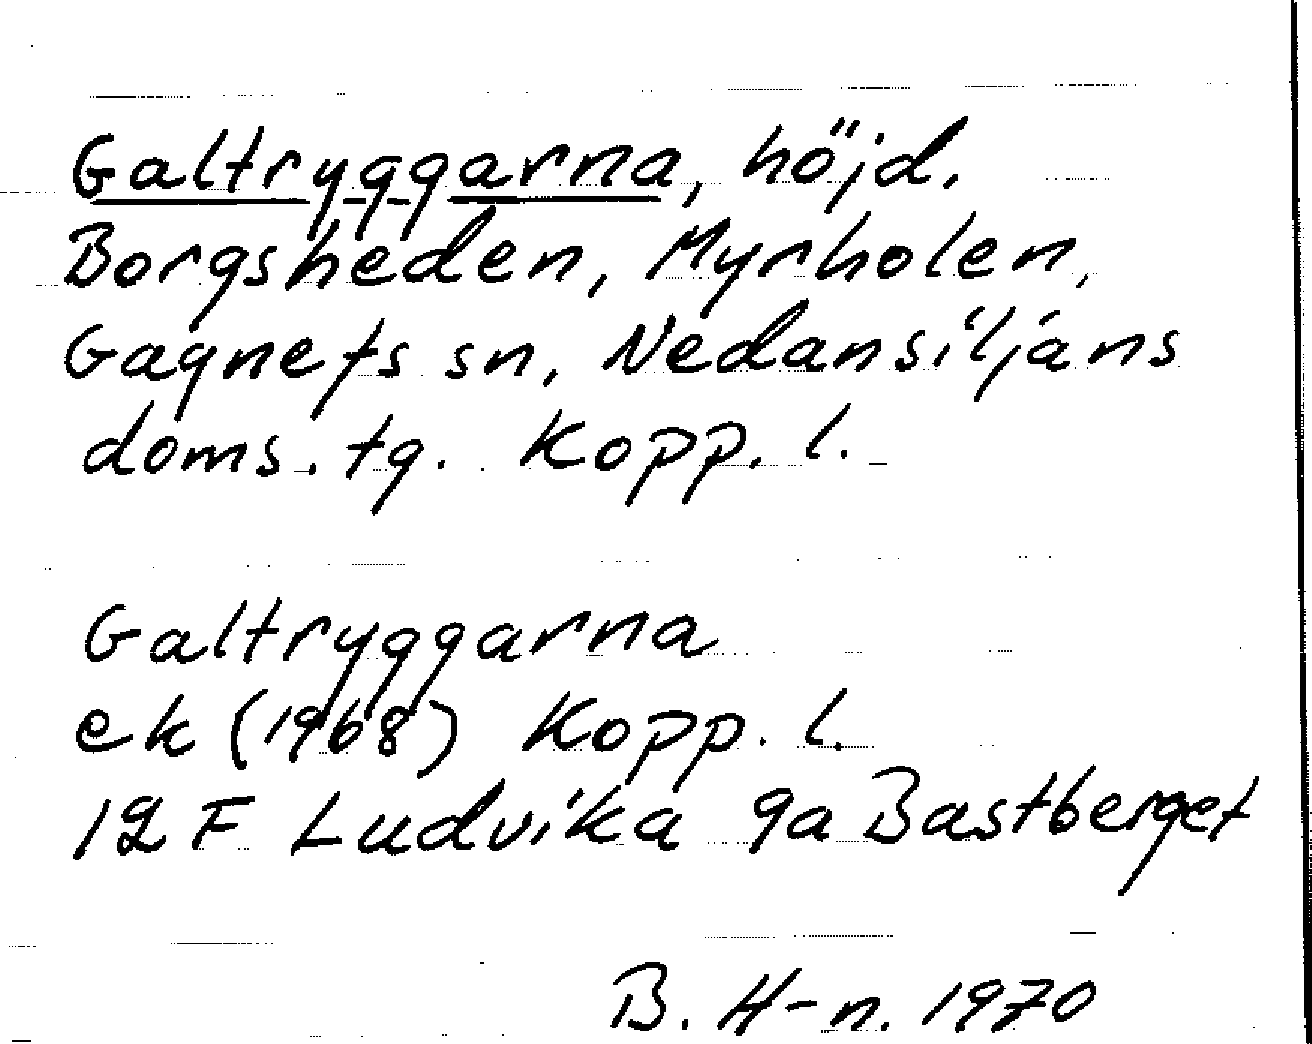 Galtryggarna, höjd.
Borgsheden, Myrholen,
Gagnefs sn, Nedansiljans
doms. tg. Kopp. l.
Galtryggarna
ek (1968) Kopp. l.
12 F Ludvika 9a Bastberget
B. H-n. 1970